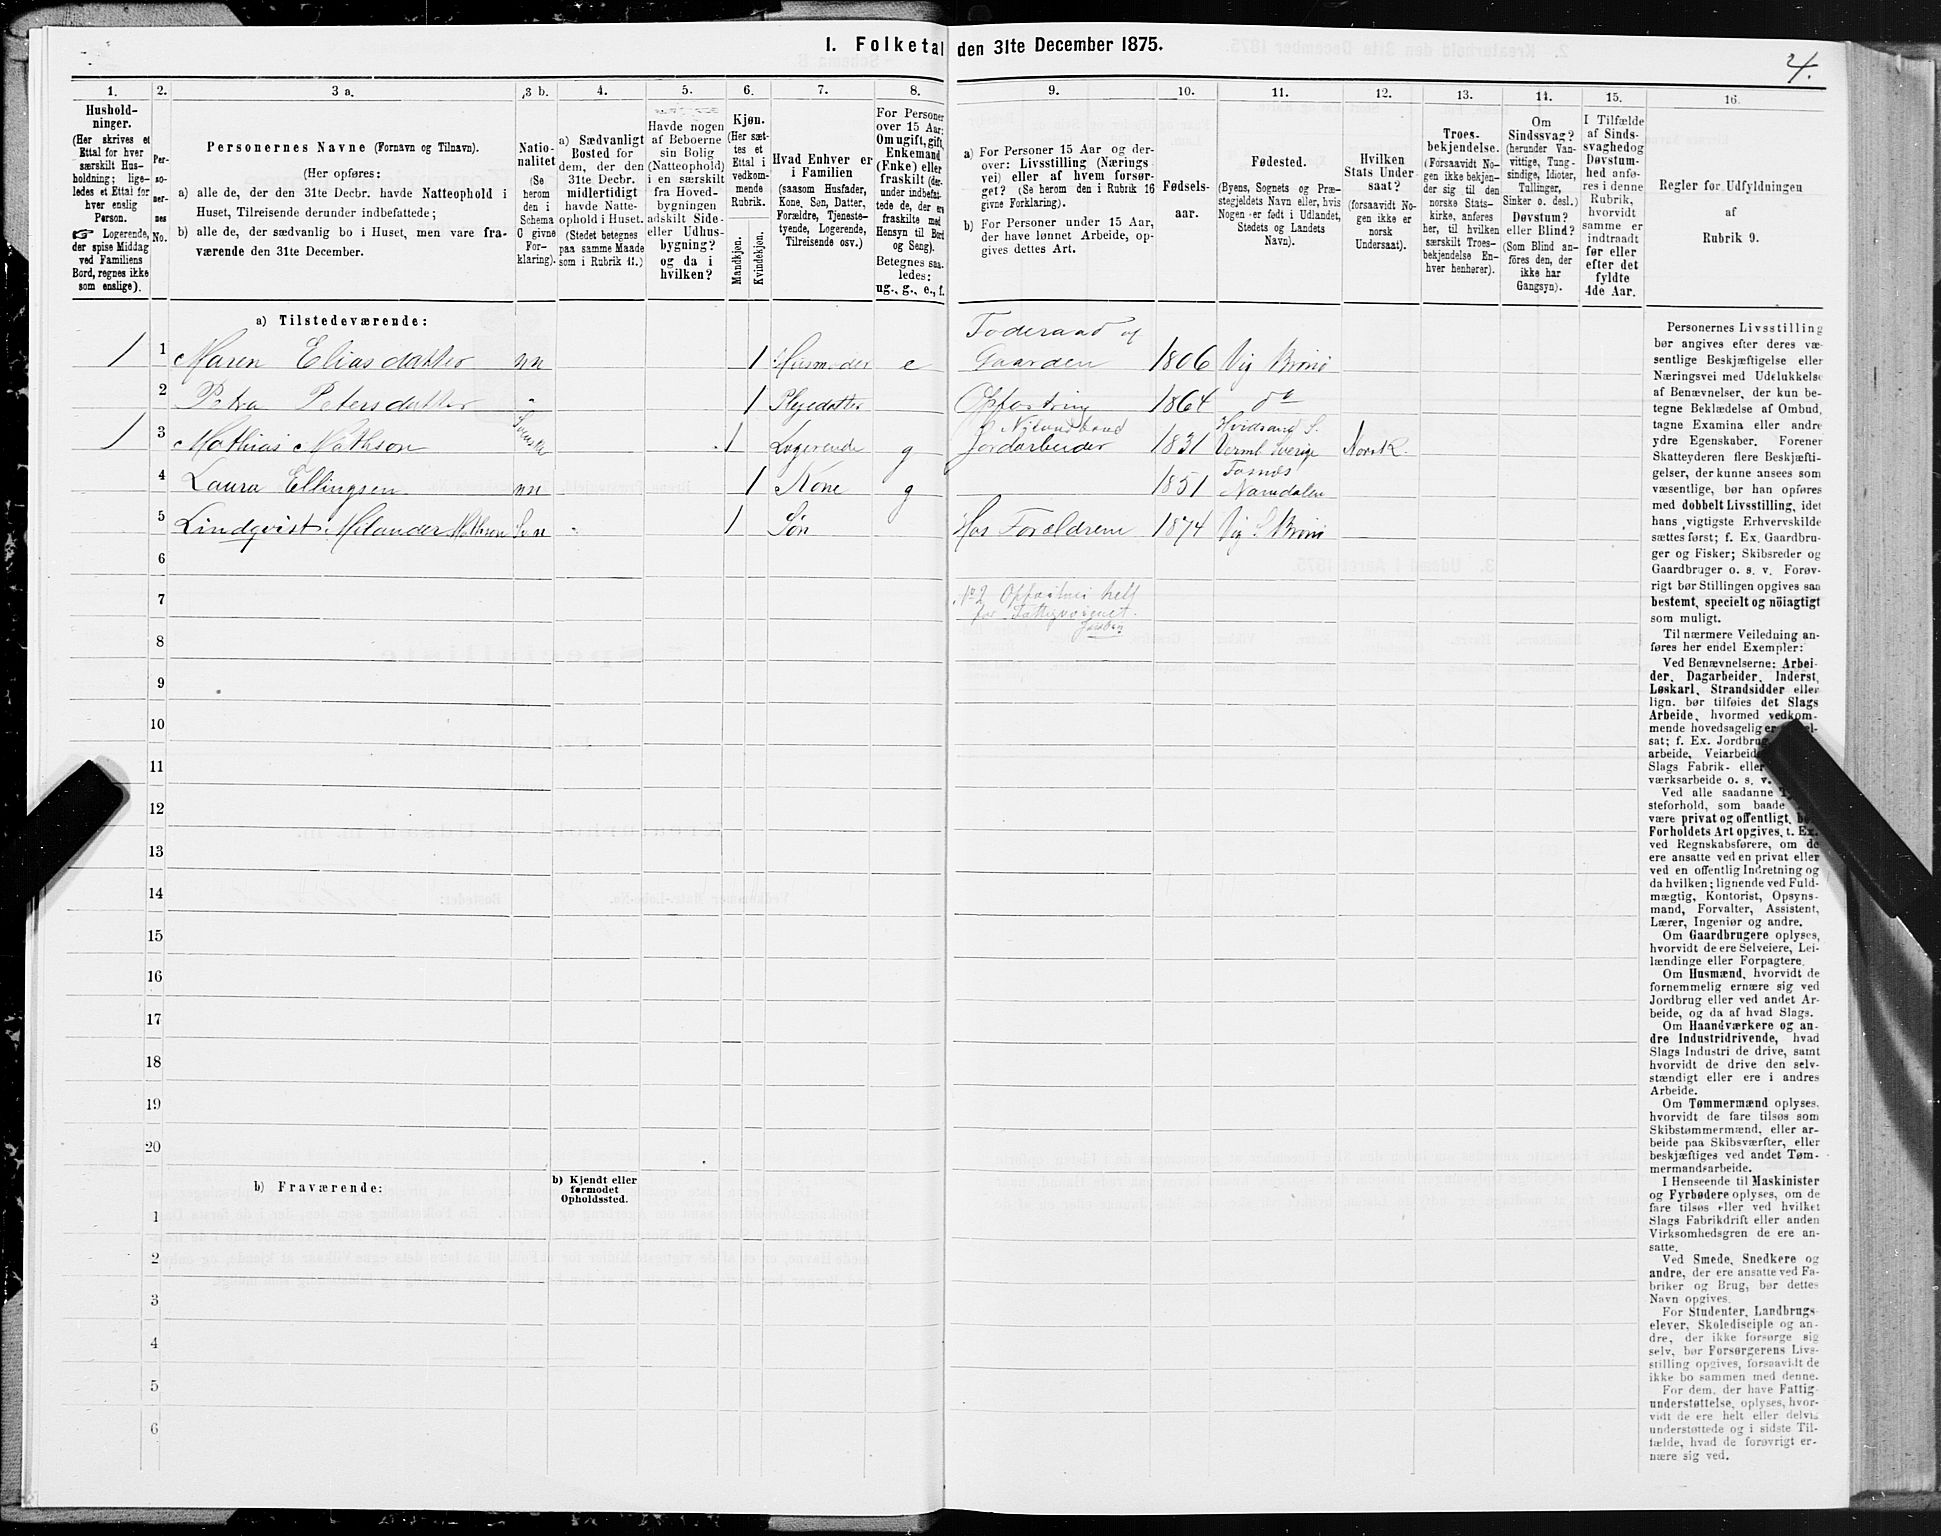 1. Folketal den 31te December 1875.
4.
1. 2. 3 a. 3 b. 4. 5. 6. 7. 8. 9. 10. 11. 12. 13. 14. 15. 16.
Hushold-
ninger.
(Her skrives et
Ettal for hver
særskilt Hus-
holdning; lige-
ledes et Ettal for
hver enslig
Person.
☞ Logerende,
der spise Middag
ved Familiens
Bord, regnes ikke
som enslige).
Per-
so-
ner-
nes
No.
Personernes Navne (Fornavn og Tilnavn).
(Her opføres:
a) alle de, der den 31te Decbr. havde Natteophold i
Huset, Tilreisende derunder indbefattede;
b) alle de, der sædvanlig bo i Huset, men vare fra-
værende den 31te December.
Natio-
nalitet
(Se
herom
den i
Schema
C givne
For-
klaring).
a) Sædvanligt
Bosted for
dem, der den
31te Decbr.
midlertidigt
havde Natte-
ophold i Huset.
(Stedet betegnes
paa samme Maade
som i Rubrik 11.)
Havde nogen
af Beboerne
sin Bolig
(Natteophold)
i en særskilt
fra Hoved-
bygningen
adskilt Side-
eller Udhus-
bygning?
og da i
hvilken?
Kjøn.
(Her sæt-
tes et
Ettal i
vedkom-
mende
Rubrik.
Mandkjøn.
Kvindekjøn.
Hvad Enhver er
i Familien
(saasom Husfader,
Kone, Søn, Datter,
Forældre, Tjeneste-
tyende, Logerende,
Tilreisende osv.)
For Personer
over 15 Aar:
Om ugift, gift,
Enkemand
(Enke) eller
fraskilt (der-
under indbefat-
tede de, der ere
fraskilte med
Hensyn til Bord
og Seng).
Betegnes saa-
ledes:
ug., g., e., f.
a) For Personer 15 Aar og der-
over: Livsstilling (Nærings-
vei) eller af hvem forsør-
get? (Se herom den i Rubrik 16
givne Forklaring).
b) For Personer under 15 Aar,
der have lønnet Arbeide, op-
gives dettes Art.
Fødsels-
aar.
Fødested.
(Byens, Sognets og Præ-
stegjeldets Navn eller, hvis
Nogen er født i Udlandet,
Stedets og Landets
Navn).
Hvilken
Stats Under-
saat?
(forsaavidt No-
gen ikke er
norsk
Undersaat).
Troes-
bekjendelse.
(Forsaavidt No-
gen ikke bekjen-
der sig til den
norske Stats-
kirke, anføres
her, til hvilken
særskilt Troes-
bekjendelse En-
hver henhører).
Om
Sindssvag?
(herunder Van-
vittige, Tung-
sindige, Idioter,
Tullinger,
Sinker o. desl.)
Døvstum?
eller Blind?
(Som Blind an-
føres den, der
ikke har
Gangsyn).
I Tilfælde
af Sinds-
svaghed og
Døvstum-
hed anfø-
res i denne
Rubrik,
hvorvidt
samme er
indtraadt
før eller
efter det
fyldte
4de Aar.
Regler før Udfyldningen
af
Rubrik 9.
a) Tilstedeværende:
Foderaad af
1 1 Maren Eliasdatter nn 1 Husmoder e Gaarden 1806 Vig Brønø
2 Petra Petersdatter " 1 Plejedatter 1864 do
1 3 Mathias Mathson 1 Logerende g Jordarbeider 1831 Verml Sverige Norsk.
4 Laura Ellingsen nn 1 Kone g 1851 Namdalen
5 Lindqvist Milander Mathson 1 Søn Hos Forældrene 1874 Vig S. Brønø
6
7
No 2 helt
for Fattigvæsenet.
8
9
10
11
12
13
14
15
16
17
18
19
20
b) Fraværende:
b) Kjendt eller
formodet
Opholdssted.
1
2
3
4
5
6
Personernes Livsstilling
bør angives efter deres væ-
sentlige Beskjæftigelse eller
Næringsvei med Udelukkelse
af Benævnelser, der kun be-
tegne Beklædelse af Ombud,
tagne Examina eller andre
ydre Egenskaber. Forener
Skatteyderen flere Beskjæfti-
gelser, der kunne ansees som
væsentlige, bør han opføres
med dobbelt Livsstilling, idet
hans vigtigste Erhvervskilde
sættes først; f. Ex. Gaardbru-
ger og Fisker; Skibsreder og
Gaardbruger o. s. v. Forøv-
rigt bør Stillingen opgives saa
bestemt, specielt og nöiagtigt
som muligt.
Til nærmere Veiledning an-
føres her endel Exempler:
Ved Benævnelserne: Arbei-
der, Dagarbeider, Inderst,
Løskarl, Strandsidder eller
lign. bør tilføies det Slags
Arbeide, hvormed vedkom-
mende hovedsagelig er
sat; f. Ex.
arbeide,
Slags Fabrik- eller
værksarbeide o. s. v.
Ved alle saadanne
steforhold, som baade
være privat og offentligt,
Forholdets Art opgives, t. Ex.
ved Regnskabsførere, om de
ere ansatte ved en privat eller
ved en offentlig Indretning og
da hvilken; lignende ved Fuld-
mægtig, Kontorist, Opsyns-
mand, Forvalter, Assistent,
Lærer, Ingeniør og andre.
Om Gaardbrugere oplyses,
hvorvidt de ere Selveiere, Lei-
lændinge eller Forpagtere.
Om Husmænd, hvorvidt de
fornemmelig ernære sig ved
Jordbrug eller ved andet Ar-
beide, og da af hvad Slags.
Om Haandværkere og an-
dre Industridrivende, hvad
Slags Industri de drive, samt
hvorvidt de drive den selv-
stændigt eller ere i andres
Arbeide.
Om Tømmermænd oplyses,
hvorvidt de fare tilsøs som
Skibstømmermænd, eller ar-
beide paa Skibsværfter, eller
beskjæftiges ved andet Tøm-
mermandsarbeide.
I Henseende til Maskinister
og Fyrbødere oplyses, om de
fare tilsøs eller ved hvilket
Slags Fabrikdrift eller anden
Virksomhedsgren de ere an-
satte.
Ved Smede, Snedkere og
andre, der ere ansatte ved Fa-
briker og Brug, bør dettes
Navn opgives.
For Studenter, Landbrugs-
elever, Skoledisciple og an-
dre, der ikke forsørge sig
selv, bør Forsørgerens Livs-
stilling opgives, forsaavidt de
ikke bo sammen med denne.
For dem, der have Fattig-
understøttelse, oplyses, hvor-
vidt de ere helt eller delvis
understøttede og i sidste Til-
fælde, hvad de forøvrigt er-
nære sig ved.